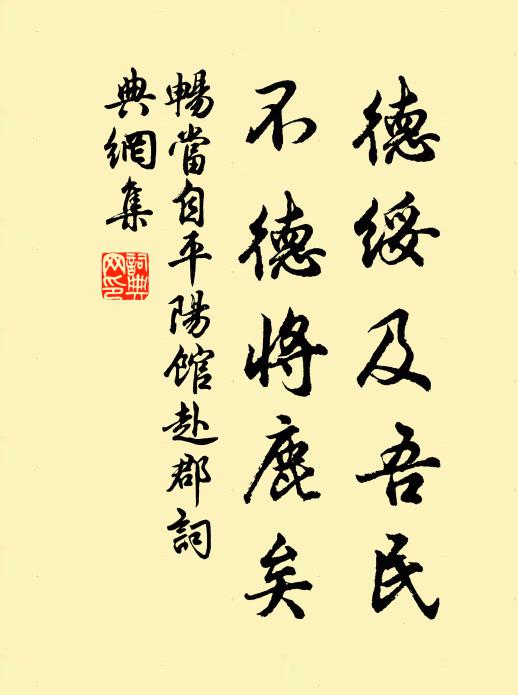 德綏及吾民
不德將鹿矣
暢當自平陽館赴郡詞
典網集
詞典網印